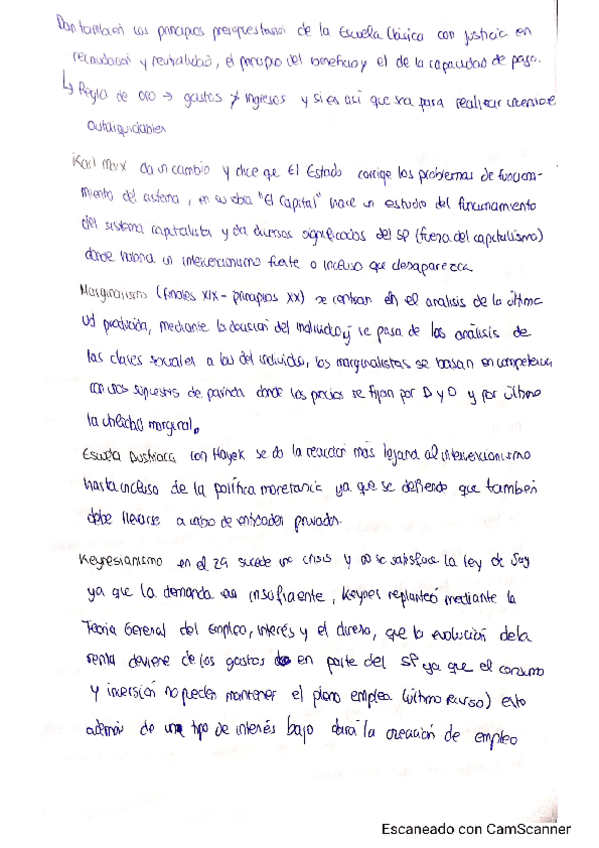 Dan también los principios presupuestarios de la Escuela Clásica con justicia en
recaudación y neutralidad, el principio del beneficio y el de la capacidad de pago.
↳ Regla de oro → gastos ≯ ingresos y si es así que sea para realizar inversiones
autoliquidables
Karl Marx da un cambio y dice que El Estado corrige los problemas de funciona-
miento del sistema, en su obra "El Capital" hace un estudio del funcionamiento
del sistema capitalista y da diversos significados del SP (fuera del capitalismo)
donde habría un intervencionismo fuerte o incluso que desaparezca.
Marginalismo (finales XIX - principios XX) se centran en el análisis de la última
ud producida, mediante la decisión del individuo y se pasa de los análisis de
las clases sociales a las del individuo, los marginalistas se basan en competencia
con unos supuestos de partida donde los precios se fijan por D y O y por último
la utilidad marginal.
Escuela Austriaca con Hayek se da la reacción más lejana al intervencionismo
hasta incluso de la política monetaria ya que se defiende que también
debe llevarse a cabo de entidades privadas.
Keynesianismo en el 29 sucede una crisis y no se satisface la ley de Say
ya que la demanda es insuficiente, Keynes replanteó mediante la
Teoría General del Empleo, interés y el dinero, que la evolución de la
renta deviene de los gastos en parte del SP ya que el consumo
y inversión no pueden mantener el pleno empleo (último recurso) esto
además de un tipo de interés bajo dará la creación de empleo
Escaneado con CamScanner